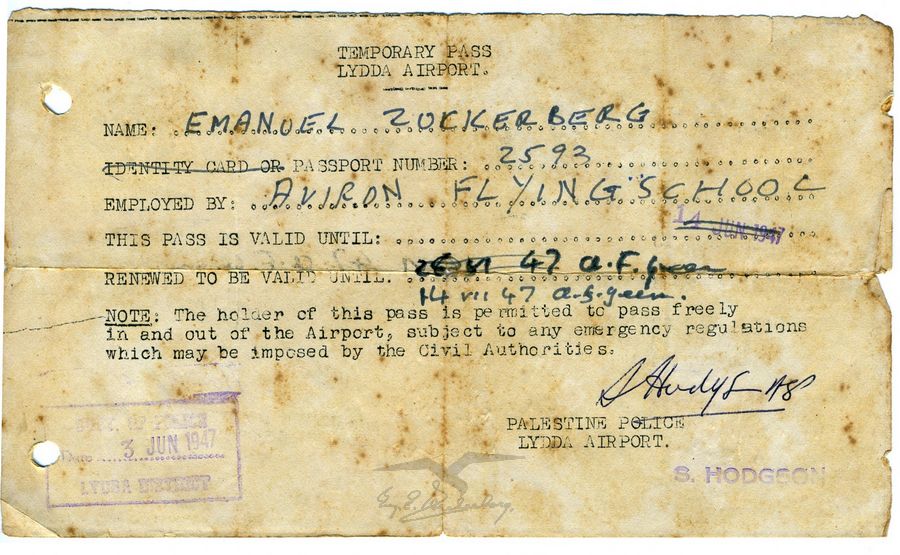 TEMPORARY PASS
LYDDA AIRPORT.
NAME: EMANUEL ZUCKERBERG
IDENTITY CARD OR PASSPORT NUMBER: 2593
EMPLOYED BY: AVIRON FLYING SCHOOL
14 JUN 1947
THIS PASS IS VALID UNTIL:
RENEWED TO BE VALID UNTIL. 47 a.F. green
14 VII 47 a.F. green.
NOTE: The holder of this pass is permitted to pass freely
in and out of the Airport, subject to any emergency regulations
which may be imposed by the Civil Authorities.
S Hodgson
PALESTINE POLICE
LYDDA AIRPORT.
OF POLICE
Date 3 JUN 1947
LYDDA DISTRICT
S. HODGSON